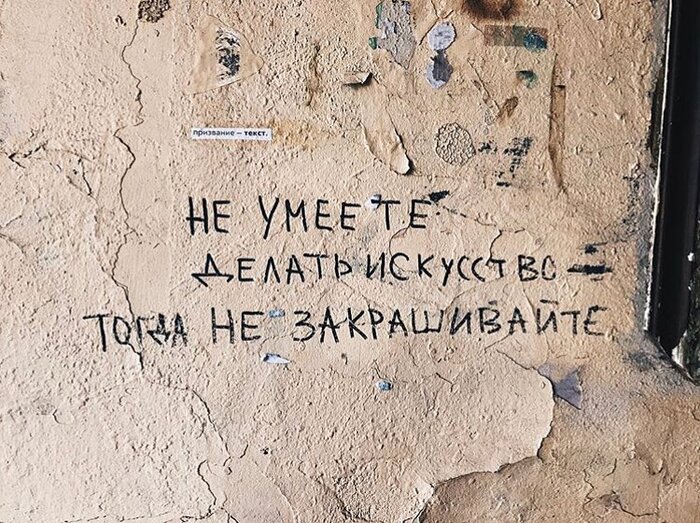 призвание — текст.
НЕ УМЕЕТЕ
ДЕЛАТЬ ИСКУССТВО —
ТОГДА НЕ ЗАКРАШИВАЙТЕ